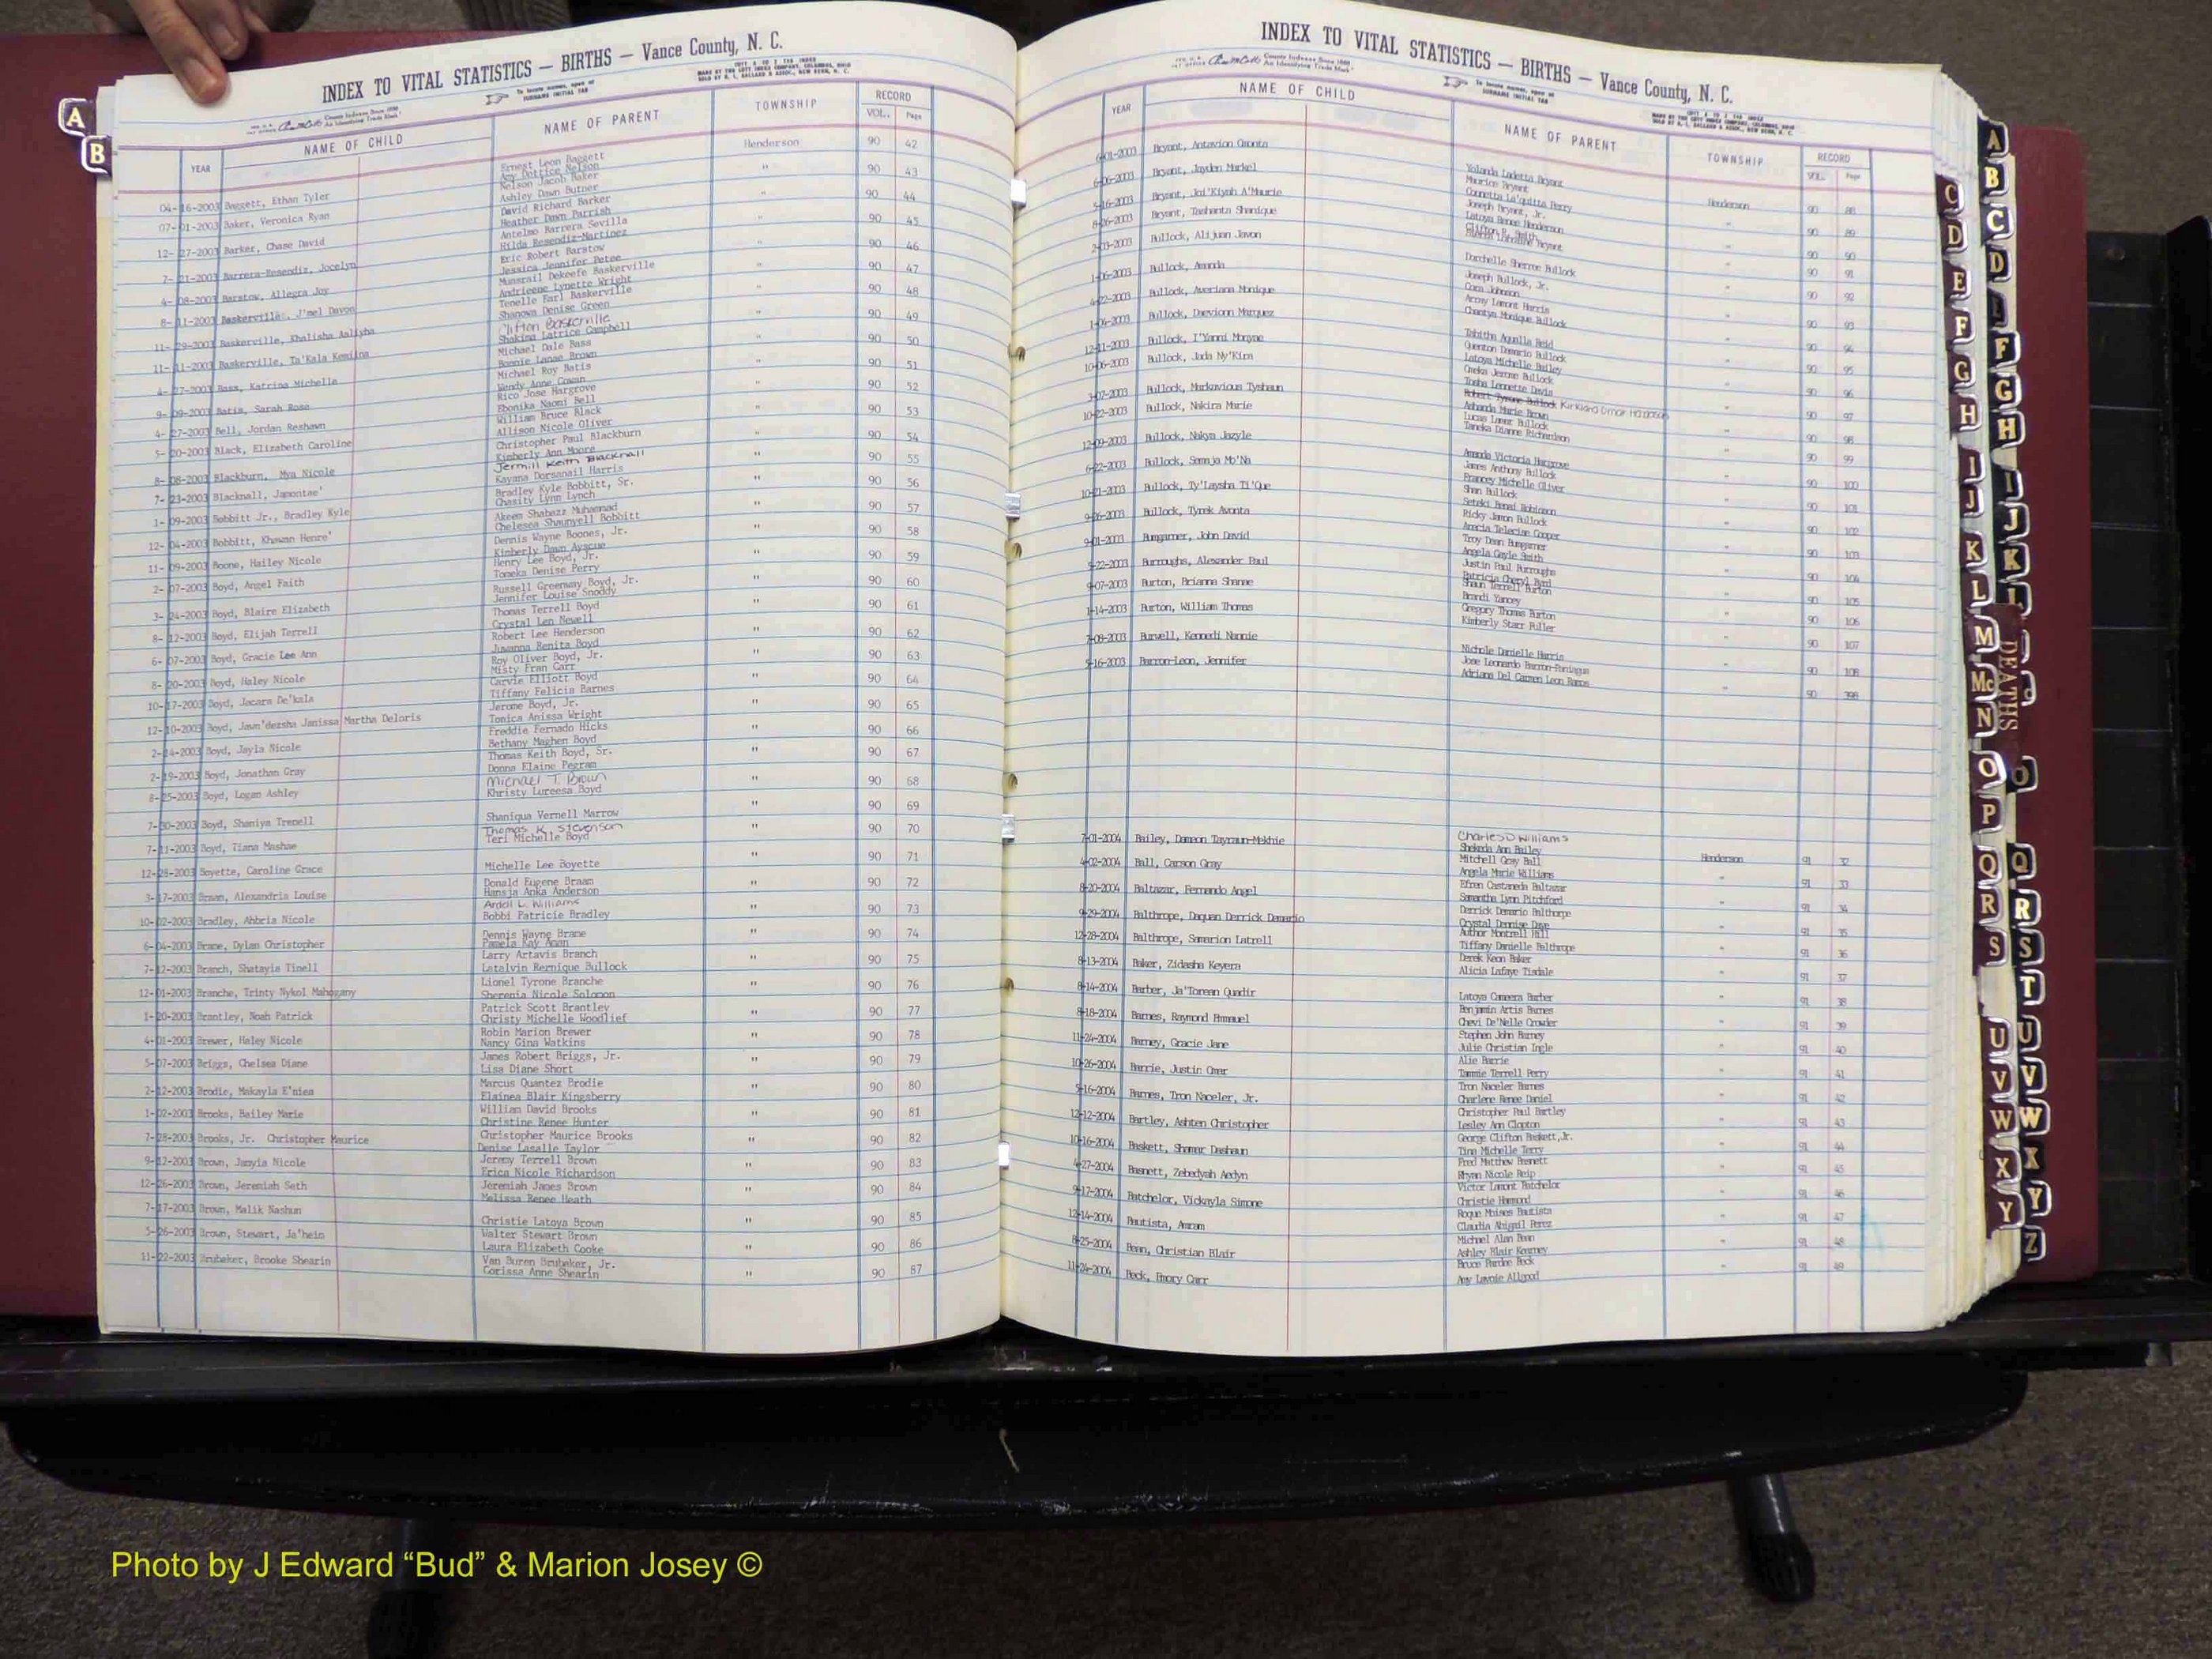 INDEX TO VITAL STATISTICS — BIRTHS — Vance County, N. C.
To locate names, open at
SURNAME INITIAL TAB
YEAR NAME OF CHILD NAME OF PARENT TOWNSHIP RECORD
VOL. Page
04-16-2003 Baggett, Ethan Tyler Ernest Leon Baggett Henderson 90 42
Amy Dottice Nelson
07-01-2003 Baker, Veronica Ryan Nelson Jacob Baker " 90 43
Ashley Dawn Butner
12-27-2003 Barker, Chase David David Richard Barker " 90 44
Heather Dawn Parrish
7-21-2003 Barrera-Resendiz, Jocelyn Antelmo Barrera Sevilla " 90 45
Hilda Resendiz-Martinez
4-08-2003 Barstow, Allegra Joy Eric Robert Barstow " 90 46
Jessica Jennifer Petee
8-11-2003 Baskerville, J'mel Davon Munsrail Dekeefe Baskerville " 90 47
Andrieene Lynette Wright
11-29-2003 Baskerville, Khalisha Aaliyha Tenelle Earl Baskerville " 90 48
Shanown Denise Green
11-11-2003 Baskerville, Ta'Kala Kemiina Clifton Baskerville " 90 49
Shakima Latrice Campbell
4-27-2003 Bass, Katrina Michelle Michael Dale Bass " 90 50
Bonnie Lanae Brown
9-09-2003 Batis, Sarah Rose Michael Roy Batis " 90 51
Wendy Anne Cowan
4-27-2003 Bell, Jordan Reshawn Rico Jose Hargrove " 90 52
Ebonika Naomi Bell
5-20-2003 Black, Elizabeth Caroline William Bruce Black " 90 53
Allison Nicole Oliver
8-08-2003 Blackburn, Mya Nicole Christopher Paul Blackburn " 90 54
Kimberly Ann Moore
7-23-2003 Blacknall, Japontae' Jermill Keith Blacknall " 90 55
Kayana Dorsanail Harris
1-09-2003 Bobbitt Jr., Bradley Kyle Bradley Kyle Bobbitt, Sr. " 90 56
Chasity Lynn Lynch
12-04-2003 Bobbitt, Khawan Henre' Akeem Shabazz Muhammad " 90 57
Chelesea Shaunyell Bobbitt
11-09-2003 Boone, Hailey Nicole Dennis Wayne Boones, Jr. " 90 58
Kimberly Dawn Ayscue
2-07-2003 Boyd, Angel Faith Henry Lee Boyd, Jr. " 90 59
Tomeka Denise Perry
3-24-2003 Boyd, Blaire Elizabeth Russell Greenway Boyd, Jr. " 90 60
Jennifer Louise Snoddy
8-12-2003 Boyd, Elijah Terrell Thomas Terrell Boyd " 90 61
Crystal Len Newell
6-07-2003 Boyd, Gracie Lee Ann Robert Lee Henderson " 90 62
Juwanna Renita Boyd
8-20-2003 Boyd, Haley Nicole Roy Oliver Boyd, Jr. " 90 63
Misty Fran Carr
10-17-2003 Boyd, Jacara De'kala Carvie Elliott Boyd " 90 64
Tiffany Felicia Barnes
12-10-2003 Boyd, Jawn'dezsha Janissa Martha Deloris Jerome Boyd, Jr. " 90 65
Tonica Anissa Wright
2-14-2003 Boyd, Jayla Nicole Freddie Fernado Hicks " 90 66
Bethany Maghen Boyd
2-19-2003 Boyd, Jonathan Gray Thomas Keith Boyd, Sr. " 90 67
Donna Elaine Pegram
8-25-2003 Boyd, Logan Ashley Michael T. Brown " 90 68
Khristy Lureesa Boyd
7-30-2003 Boyd, Shaniya Trenell Shaniqua Vernell Marrow " 90 69
7-11-2003 Boyd, Tiana Mashae Thomas K. Stevenson " 90 70
Teri Michelle Boyd
12-28-2003 Boyette, Caroline Grace Michelle Lee Boyette " 90 71
3-17-2003 Braam, Alexandria Louise Donald Eugene Braam " 90 72
Hansja Anka Anderson
10-02-2003 Bradley, Ahbria Nicole Ardell L. Williams " 90 73
Bobbi Patricie Bradley
6-04-2003 Brame, Dylan Christopher Dennis Wayne Brame " 90 74
Pamela Kay Aman
7-12-2003 Branch, Shatayia Tinell Larry Artavis Branch " 90 75
Latalvin Rernique Bullock
12-01-2003 Branche, Trinty Nykol Mahogany Lionel Tyrone Branche " 90 76
Sherenia Nicole Solomon
1-20-2003 Brantley, Noah Patrick Patrick Scott Brantley " 90 77
Christy Michelle Woodlief
4-01-2003 Brewer, Haley Nicole Robin Marion Brewer " 90 78
Nancy Gina Watkins
5-07-2003 Briggs, Chelsea Diane James Robert Briggs, Jr. " 90 79
Lisa Diane Short
2-12-2003 Brodie, Makayla E'niea Marcus Quantez Brodie " 90 80
Elainea Blair Kingsberry
1-02-2003 Brooks, Bailey Marie William David Brooks " 90 81
Christine Renee Hunter
7-28-2003 Brooks, Jr. Christopher Maurice Christopher Maurice Brooks " 90 82
Denise Lasalle Taylor
9-12-2003 Brown, Janyia Nicole Jeremy Terrell Brown " 90 83
Erica Nicole Richardson
12-26-2003 Brown, Jeremiah Seth Jeremiah James Brown " 90 84
Melissa Renee Heath
7-17-2003 Brown, Malik Nashun Christie Latoya Brown " 90 85
5-26-2003 Brown, Stewart, Ja'hein Walter Stewart Brown " 90 86
Laura Elizabeth Cooke
11-22-2003 Brubaker, Brooke Shearin Van Buren Brubaker, Jr. " 90 87
Corissa Anne Shearin
INDEX TO VITAL STATISTICS — BIRTHS — Vance County, N. C.
To locate names, open at
SURNAME INITIAL TAB
YEAR NAME OF CHILD NAME OF PARENT TOWNSHIP RECORD
VOL. Page
6-01-2003 Bryant, Antavion Qmonta Yolanda Ladetta Bryant Henderson 90 88
6-06-2003 Bryant, Jayden Markel Maurice Bryant " 90 89
Counetta La'quitta Perry
5-16-2003 Bryant, Jai'Kiyah A'Maurie Joseph Bryant, Jr. " 90 90
Latoya Renee Henderson
8-06-2003 Bryant, Tashanta Shanique Clifton R. Smith " 90 91
Lorraine Bryant
2-03-2003 Bullock, Alijuan Javon Dorchelle Sherron Bullock " 90 92
1-06-2003 Bullock, Amanda Joseph Bullock, Jr. " 90 93
Cora Johnson
4-22-2003 Bullock, Averiana Monique Lamont Harris " 90 94
Chantya Monique Bullock
1-06-2003 Bullock, Daevionn Marquez Tabitha Aqualla Reid " 90 95
12-11-2003 Bullock, I'Yanni Monyne Quenton Demario Bullock " 90 96
Latoya Michelle Bailey
10-06-2003 Bullock, Jada Ny'Kim Omeka Jerome Bullock " 90 97
Tosha Lennette Davis
3-07-2003 Bullock, Markavious Tyshaun Robert Tyrone Bullock Kirkland Omar Harrison " 90 98
Ashanda Marie Brown
10-22-2003 Bullock, Nakira Marie Lucas Lamar Bullock " 90 99
Taneka Dianne Richardson
12-09-2003 Bullock, Nakya Jazyle Amanda Victoria Hargrove " 90 100
6-22-2003 Bullock, Semaja Mo'Na James Anthony Bullock " 90 101
Francey Michelle Oliver
10-21-2003 Bullock, Ty'Laysha Ti'Que Shan Bullock " 90 102
Robinson
9-26-2003 Bullock, Tyrek Avonta Ricky Jamon Bullock " 90 103
Amecia Telecise Cooper
9-01-2003 Bumgarner, John David Troy Dean Bumgarner " 90 104
Angela Gayle Smith
5-22-2003 Burroughs, Alexander Paul Justin Paul Burroughs " 90 105
Patricia Cheryl Byrd
9-07-2003 Burton, Brianna Shanae Shaun Terrell Burton " 90 106
Brandi Yancey
1-14-2003 Burton, William Thomas Gregory Thomas Burton " 90 107
Kimberly Starr Fuller
7-08-2003 Burwell, Kennedi Nannie Nichole Danielle Harris 90 108
5-16-2003 Barron-Leon, Jennifer Jose Leonardo Barron-Paniagua 90 398
Adriana Del Carmen Leon Ramos
7-01-2004 Bailey, Dameon Tayraun-Makhie Charles D Williams Henderson 91 32
Shekeda Ann Bailey
4-02-2004 Ball, Carson Gray Mitchell Gray Ball " 91 33
Angela Marie Williams
8-20-2004 Baltazar, Fernando Angel Efren Castaneda Baltazar " 91 34
Samantha Lynn Pitchford
9-29-2004 Balthrope, Daquan Derrick Demario Derrick Demario Balthorpe " 91 35
Crystal Dennise Daye
12-28-2004 Balthrope, Samarion Latrell Author Montrell Hill " 91 36
Tiffany Danielle Balthrope
8-13-2004 Baker, Zidasha Keyera Derek Keon Baker " 91 37
Alicia Lafaye Tisdale
8-14-2004 Barber, Ja'Torean Quadir Latoya Cameera Barber " 91 38
8-18-2004 Barnes, Raymond Emmauel Benjamin Artis Barnes " 91 39
Chevi De'Nelle Crowder
11-24-2004 Barney, Gracie Jane Stephen John Barney " 91 40
Julie Christian Ingle
10-26-2004 Barrie, Justin Omar Alie Barrie " 91 41
Tammie Terrell Perry
5-16-2004 Barnes, Tron Naceler, Jr. Tron Naceler Barnes " 91 42
Charlene Renee Daniel
12-12-2004 Bartley, Ashten Christopher Christopher Paul Bartley " 91 43
Lesley Ann Clopton
10-16-2004 Baskett, Shamar Dashaun George Clifton Baskett, Jr. " 91 44
Tina Michelle Terry
4-27-2004 Basnett, Zebedyah Aedyn Fred Matthew Basnett " 91 45
Rhynn Nicole Reip
9-17-2004 Batchelor, Vickayla Simone Victor Lamont Batchelor " 91 46
Christie Hammond
12-14-2004 Bautista, Amram Roque Moises Bautista " 91 47
Claudia Abigail Perez
8-25-2004 Bean, Christian Blair Michael Alan Bean " 91 48
Ashley Blair Kearney
11-24-2004 Beck, Emory Carr Bruce Pardee Beck " 91 49
Amy Lavoie Allgood
A
B
C
D
E
F
G
H
I
J
K
L
M
Mc
N
O
P
Q
R
S
U
V
W
X
Y
A
B
C
D
E
F
G
H
I
J
K
L
DEATHS
O
Q
R
S
T
U
V
W
X
Y
Z
Photo by J Edward “Bud” & Marion Josey ©